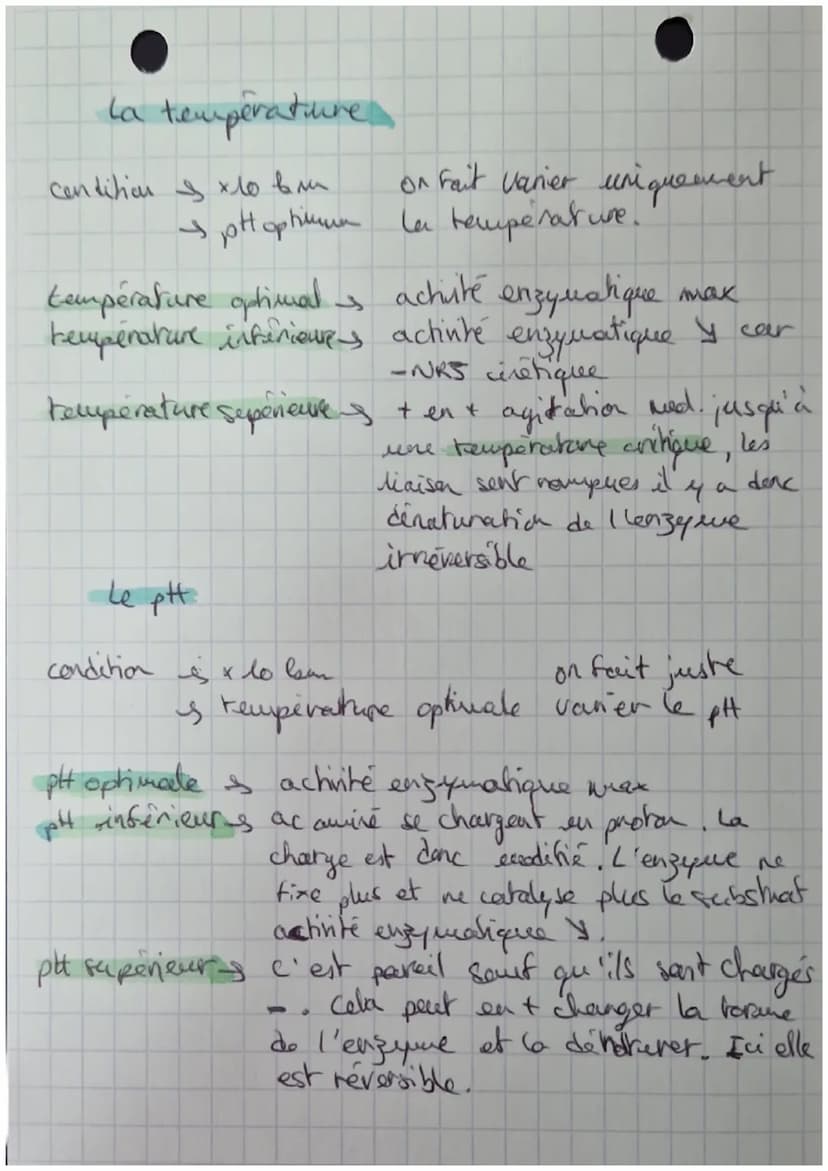 La température
condition → x10 km on fait varier uniquement
→ pH optimum la température.
température optimal → activité enzymatique max
température inférieure → activité enzymatique ↘ car
- NRJ cinétique
température supérieure → + en + agitation mol. jusqu'à
une température critique, les
liaison sont rompues il y a donc
dénaturation de l'enzyme
irréversible
Le pH
condition → x 10 km on fait juste
→ température optimale varier le pH
pH optimale → activité enzymatique max
pH inférieur → ac aminé se chargent en proton. La
charge est donc modifié. L'enzyme ne
fixe plus et ne catalyse plus le substrat
activité enzymatique ↘.
pH supérieur → c'est pareil sauf qu'ils sont chargés
-. Cela peut en + changer la forme
de l'enzyme et la dénaturer. Ici elle
est réversible.